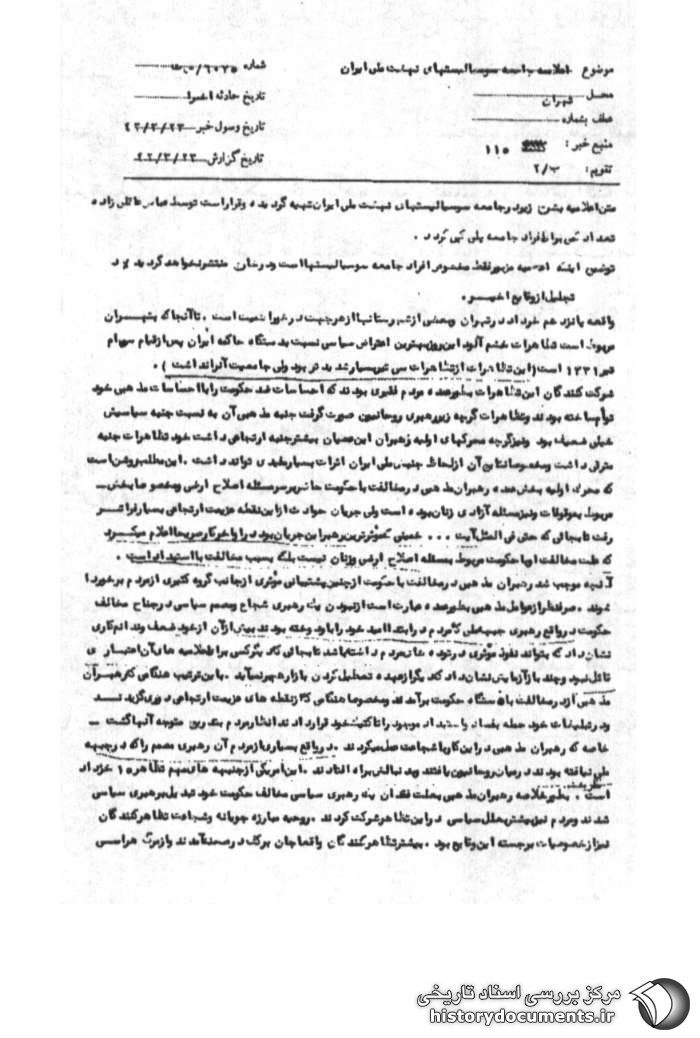 موضوع اعلامیه جامعه سوسیالیستهای نهضت ملی ایران
شماره
محل تهران
تاریخ حادثه اخیرا
عطف بشماره
تاریخ وصول خبر ۴۲/۳/۲۳
منبع خبر: ۱۱۵
تاریخ گزارش ۴۲/۳/۲۳
تقویم: ب/۲
متن اعلامیه بشرح زیر در جامعه سوسیالیستهای نهضت ملی ایران تهیه گردیده و قرار است توسط عباس عاقلی زاده
تعداد کمی برای افراد جامعه پلی کپی گردد .
توضیح اینکه اعلامیه مزبور فقط مخصوص افراد جامعه سوسیالیستها است و در خارج منتشر نخواهد گردید
تحلیل از وقایع اخیر .
واقعه پانزدهم خرداد در تهران و بعضی از شهرستانها از هر جهت در خور اهمیت است . تا آنجا که بتهران
مربوط است تظاهرات خشم آلود این روز بهترین اعتراض سیاسی نسبت بدستگاه حاکمه ایران پس از قیام سی ام
تیر ۱۳۳۱ است (این تظاهرات از تظاهرات سی تیر بسیار شدیدتر بود ولی جامعیت آنرا نداشت ) .
شرکت کنندگان این تظاهرات بطور عمده مردم فقیری بودند که احساسات ضد حکومت را با احساسات مذهبی خود
توأم ساخته بودند و تظاهرات گرچه زیر رهبری روحانیون صورت گرفت جنبه مذهبی آن به نسبت جنبه سیاسیش
خیلی ضعیف بود و نیز گرچه محرکهای اولیه رهبران این عصیان بیشتر جنبه ارتجاعی داشت خود تظاهرات جنبه
مترقی داشت و مخصوصا نتایج آن از لحاظ جنبش ملی ایران اثرات بسیار مفیدی تواند داشت . این مطلب روشن است
که محرک اولیه بخش عمده رهبران مذهبی در مخالفت با حکومت حاضر بر سر مسئله اصلاح ارضی و مخصوصا بخش
مربوط بموقوفات و نیز مسئله آزادی زنان بوده است ولی جریان حوادث از این نقطه عزیمت ارتجاعی بسیار فراتر
رفت تا بجائی که حتی فی المثل آیت ... خمینی که مؤثرترین رهبر این جریان بود در اواخر کار صریحا اعلام میکرد
که علت مخالفت او با حکومت مربوط بمسئله اصلاح ارضی و زنان نیست بلکه بسبب مخالفت با استبداد است .
آنچه موجب شد رهبران مذهبی در مخالفت با حکومت از چنین پشتیبانی مؤثری از جانب گروه کثیری از مردم برخوردار
شوند . صرفنظر از عوامل مذهبی بطور عمده عبارت است از نبودن یک رهبری شجاع و مصمم سیاسی در جناح مخالف
حکومت در واقع رهبری جبهه ملی که مردم در ابتدا امید خود را باو دوخته بودند بیش از آن از خود ضعف و ندانم کاری
نشان داد که بتواند نفوذ مؤثری در توده های مردم داشته باشد تا بجائی که دیگر کسی برای اعلامیه های آن اعتباری
قائل نبود و چند بار آزمایش نشان داد که دیگر از عهده تعطیل کردن بازار هم بر نمیآید . باین ترتیب هنگامی که رهبران
مذهبی از در مخالفت با دستگاه حکومت برآمدند و مخصوصا هنگامی که از نقطه های عزیمت ارتجاعی دوری گزیدند
و در تبلیغات خود حمله بفساد و استبداد موجود را تاکتیک خود قرار دادند انظار مردم بتدریج متوجه آنها گشت
خاصه که رهبران مذهبی در این کار با شجاعت عمل میکردند . در واقع بسیاری از مردم آن رهبری مصمم را که در جبهه
ملی نیافته بودند در میان روحانیون یافتند و بدنبالش براه افتادند . این امر یکی از جنبه های مهم تظاهر ۱۵ خرداد
است . بطور خلاصه رهبران مذهبی بعلت فقدان یک رهبری سیاسی مخالف حکومت خود تبدیل برهبری سیاسی
شدند و مردم نیز بیشتر بعلل سیاسی در این تظاهر شرکت کردند . روحیه مبارزه جویانه و شجاعت تظاهرکنندگان
نیز از خصوصیات برجسته این وقایع بود . بیشتر تظاهرکنندگان واقعا جان برکف در صحنه آمدند و از مرگ هراسی
مرکز بررسی اسناد تاریخی
historydocuments.ir